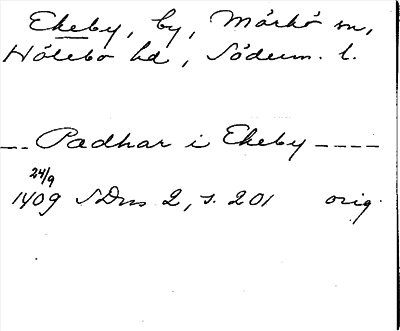 Ekeby, by, Mörkö sn,
Hölebo hd, Söderm. l.
-- Padhar i Ekeby ----
24/9
1409 SDns 2, s. 201 orig.